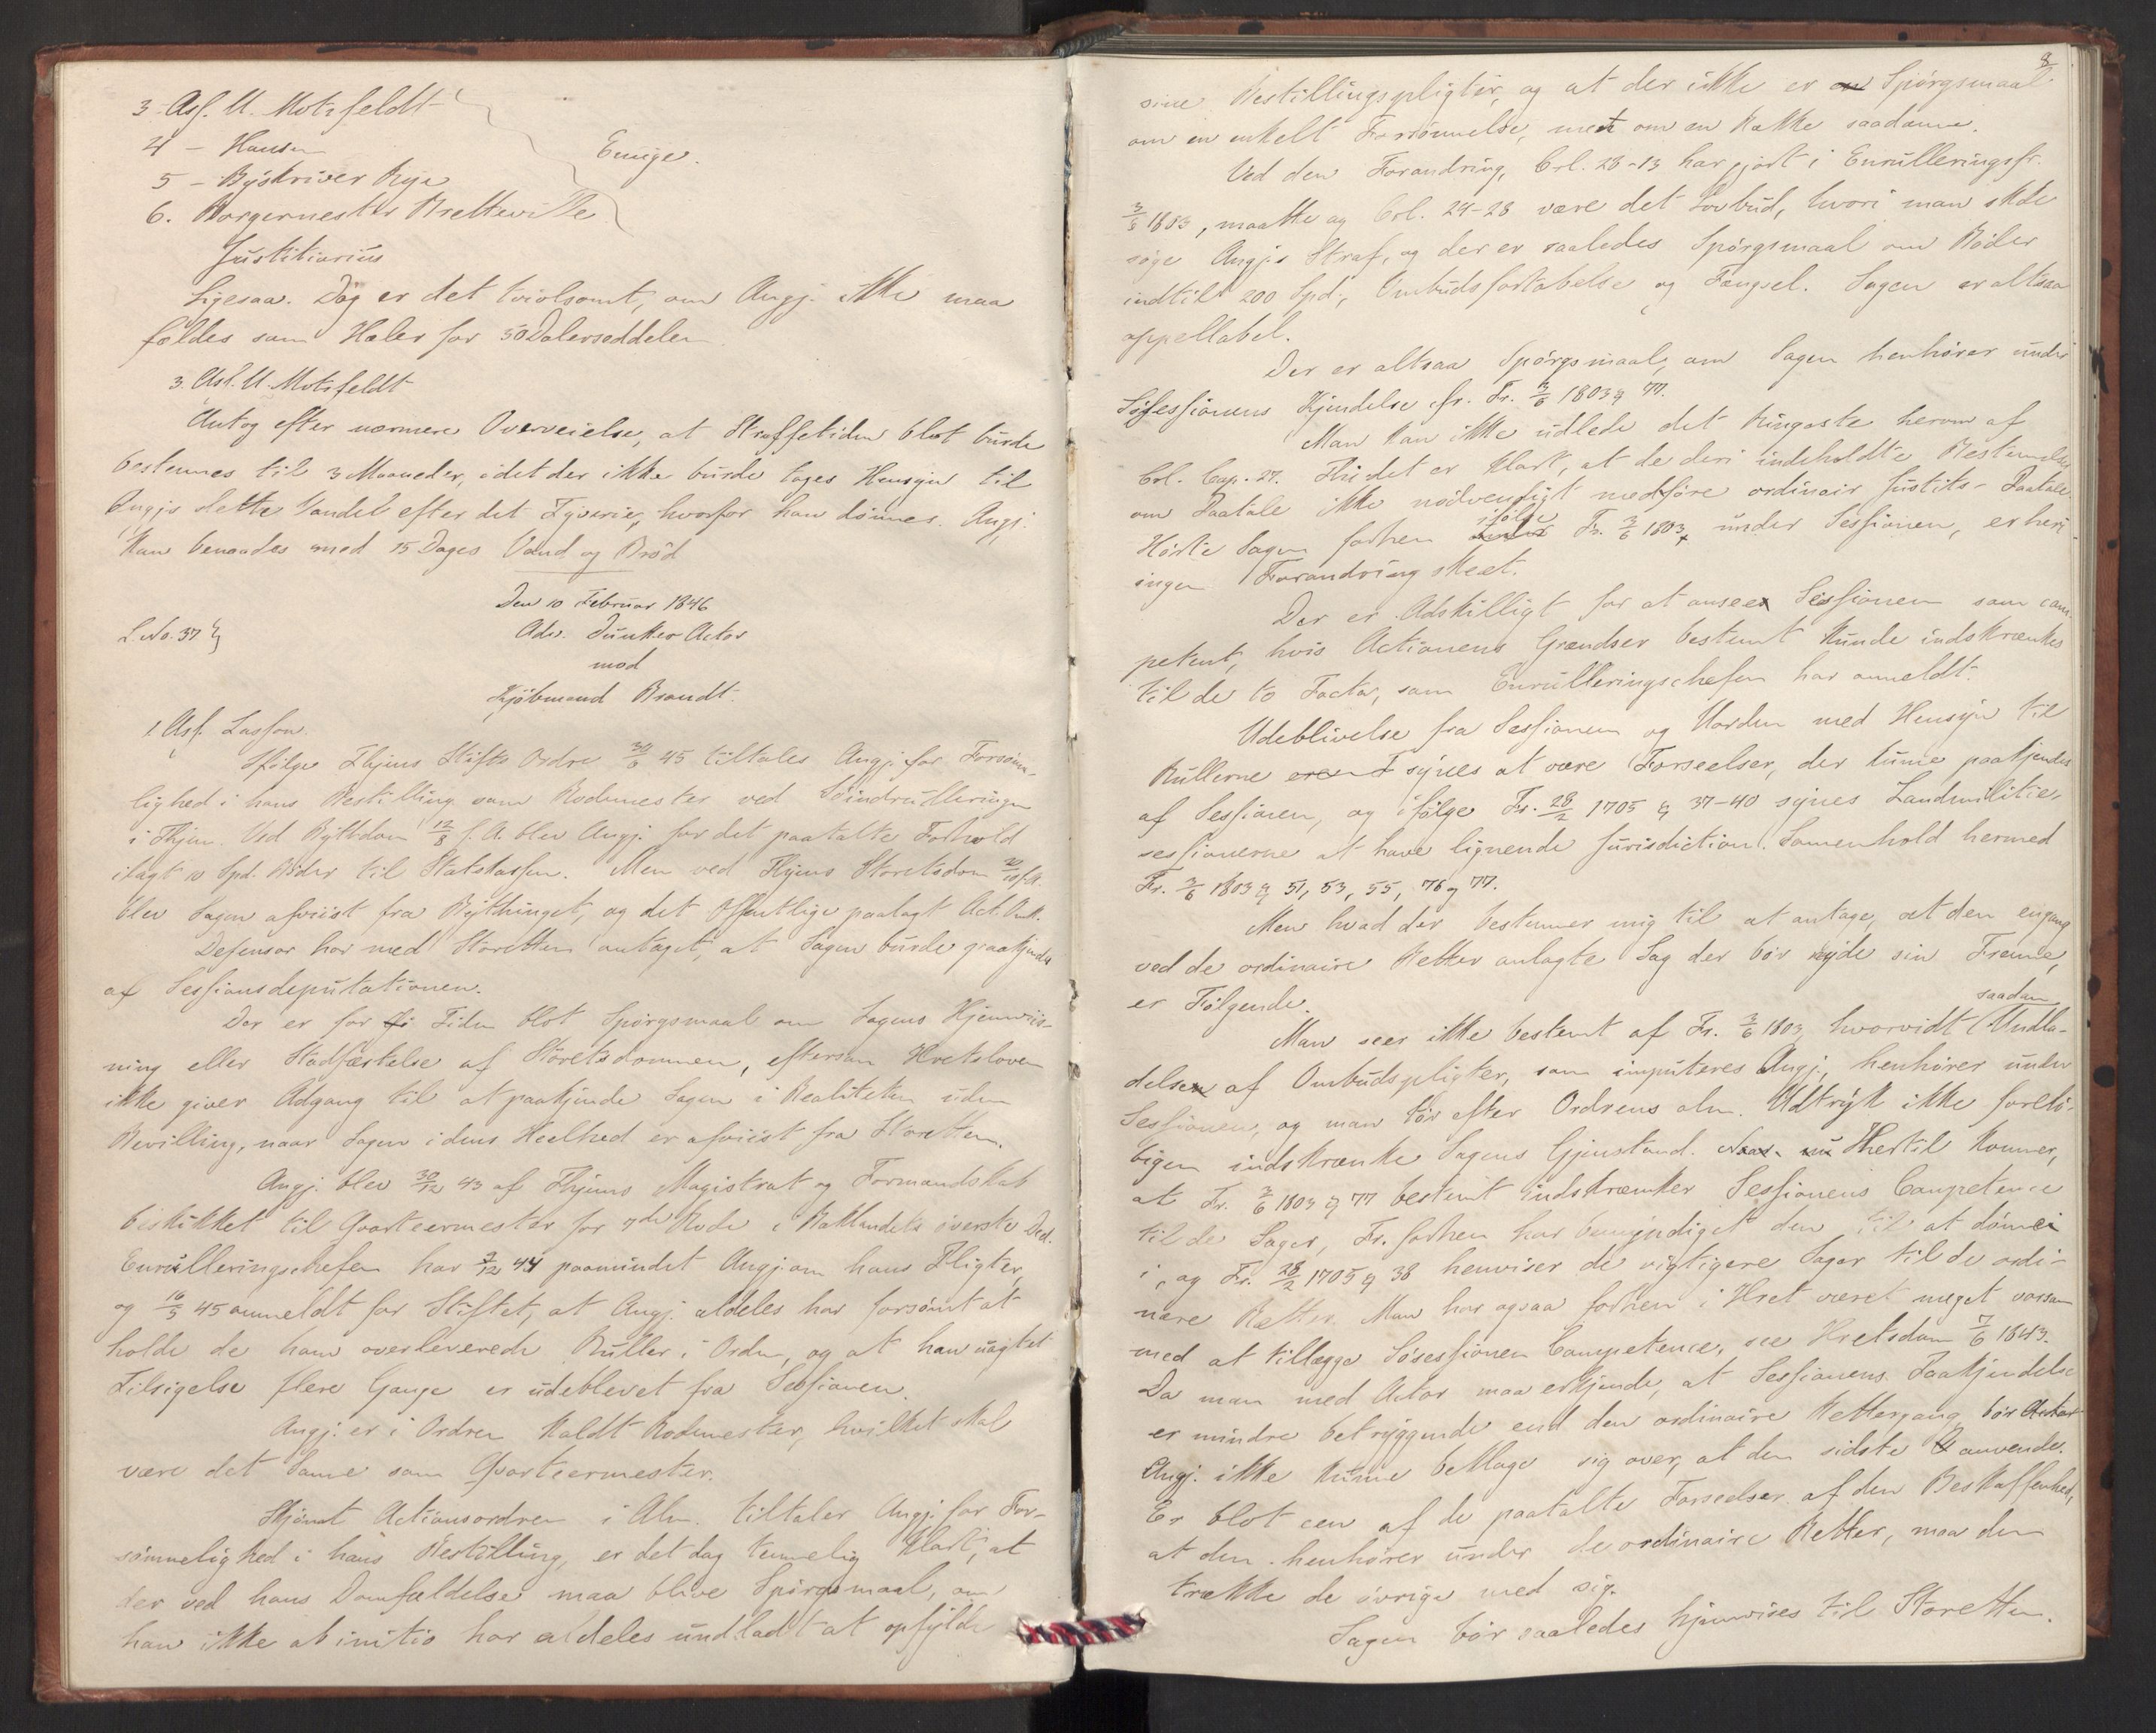 3. Ass. U. Motzfeldt
4 - Hansen
Enige.
5 - Byskriver Rye
6. Borgermester Bretteville
Justitiarius
Ligesaa. Dog er det tvivlsomt, om Angj. ikke maa
fældes som Hæler for 50Dalersseddelen.
3. Ass. U. Motzfeldt
Antog efter nærmere Overveielse, at Straffetiden blot burde
bestemmes til 3 Maaneder, idet der ikke burde tages Hensyn til
Angjs slette Vandel efter det Tyverie, hvorfor han dømmes. Angj.
kan benaades med 15 Dages Vand og Brød
Den 10 Februar 1846
L. No. 37
Adv. Dunker Actor
mod
Kjøbmand Brandt.
1. Ass. Lasson.
Ifølge Thjems Stifts Ordre 30/6 45 tiltales Angj. for Forsøm-
lighed i hans Bestilling som Rodemester ved Søindrulleringen
i Thjem. Ved Bythdom 12/8 f. A. blev Angj. for det paatalte Forhold
ilagt 10 Spd. Bøder til Statskassen. Men ved Thjems Storetsdom 20/10 f. A.
blev Sagen afviist fra Bythinget, og det Offentlige paalagt Act. Omk.
Defensor har med Storetten antaget, at Sagen burde paakjendes
af Sessionsdeputationen.
Der er for Tiden blot Spørgsmaal om Sagens Hjemviis-
ning eller Stadfæstelse af Storetsdommen, eftersom Hretsloven
ikke giver Adgang til at paakjende Sagen i Realiteten uden
Bevilling, naar Sagen i dens Heelhed er afviist fra Storetten.
Angj. blev 30/12 43 af Thjems Magistrat og Formandskab
beskikket til Qvarteermester for 7de Rode i Baklandets øverste Deel.
Enrulleringschefen har 2/12 44 paamindet Angj. om hans Pligter,
og 16/5 45 anmeldt for Stiftet, at Angj. aldeles har forsømt at
holde de ham overleverede Ruller i Orden, og at han uagtet
Tilsigelse flere Gange er udeblevet fra Sessionen.
Angj. er i Ordren kaldt Rodemester, hvilket skal
være det Samme som Qvarteermester.
Skjøndt Actionsordren i Alm. tiltaler Angj. for For-
sømmelighed i hans Bestilling, er det dog temmelig klart, at
der ved hans Domfældelse maa blive Spørgsmaal, om
han ikke ab initio har aldeles undladt at opfylde
8
sine Bestillingspligter, og at der ikke er Spørgsmaal
om en enkelt Forsømmelse, men om en Række saadanne.
Ved den Forandring, Crl. 28-13 har gjort i Enrulleringsfr.
3/6 1803, maatte og Crl. 24-28 være det Lovbud, hvori man skde
søge Angjs Straf, og der er saaledes Spørgsmaal om Bøder
indtil 200 Spd., Ombudsfortabelse og Fængsel. Sagen er altsaa
appellabel.
Der er altsaa Spørgsmaal, om Sagen henhører under
Søsessionens Kjendelse cfr. Fr. 3/6 1803 § 77.
Man kan ikke udlede det Ringeste herom af
Crl. Cap. 27. Thi det er klart, at de deri indeholdte Bestemmelser
om Paatale ikke nødvendigt medføre ordinair Justits-Paatale.
Hørte Sagen forhen ifølge Fr. 3/6 1803 under Sessionen, er heri
ingen Forandring skeet.
Der er Adskilligt for at ansee Sessionen som com-
petent, hvis Actionens Grændser bestemt kunde indskrænkes
til de to Facta, som Enrulleringschefen har anmeldt.
Udeblivelse fra Sessionen og Uorden med Hensyn til
Rullerne synes at være Forseelser, der kunne paakjendes
af Sessionen, og ifølge Fr. 28/2 1705 § 37-40 synes Landmilitie-
sessionerne at have lignende Jurisdiction. Sammenhold hermed
Fr. 3/6 1803 § 51, 53, 55, 76 og 77.
Men hvad der bestemmer mig til at antage, at den engang
ved de ordinaire Retter anlagte Sag der bør nyde sin Fremme,
er Følgende.
Man seer ikke bestemt af Fr. 3/6 1803, hvorvidt saadan Undla-
delse af Ombudspligter, som imputeres Angj., henhører under
Sessionen, og man tør efter Ordrens alm. Udtryk ikke forelø-
bigen indskrænke Sagens Gjenstand. Hertil kommer,
at Fr. 3/6 1803 § 77 bestemt indskrænker Sessionens Competence
til de Sager, Fr. forhen har bemyndiget den til at dømme
i, og Fr. 28/2 1705 § 38 henviser de vigtigere Sager til de ordi-
nære Retter. Man har ogsaa forhen i Hret været meget varsom
med at tillægge Søsessionen Competence, see Hretsdom 7/6 1843.
Da man med Actor maa erkjende, at Sessionens Paakjendelse
er mindre betryggende end den ordinaire Rettergang, bør
Angj. ikke kunne beklage sig over, at den sidste anvendes.
Er blot een af de paatalte Forseelser af den Beskaffenhed,
at den henhører under de ordinaire Retter, maa den
trække de øvrige med sig.
Sagen bør saaledes hjemvises til Storetten.